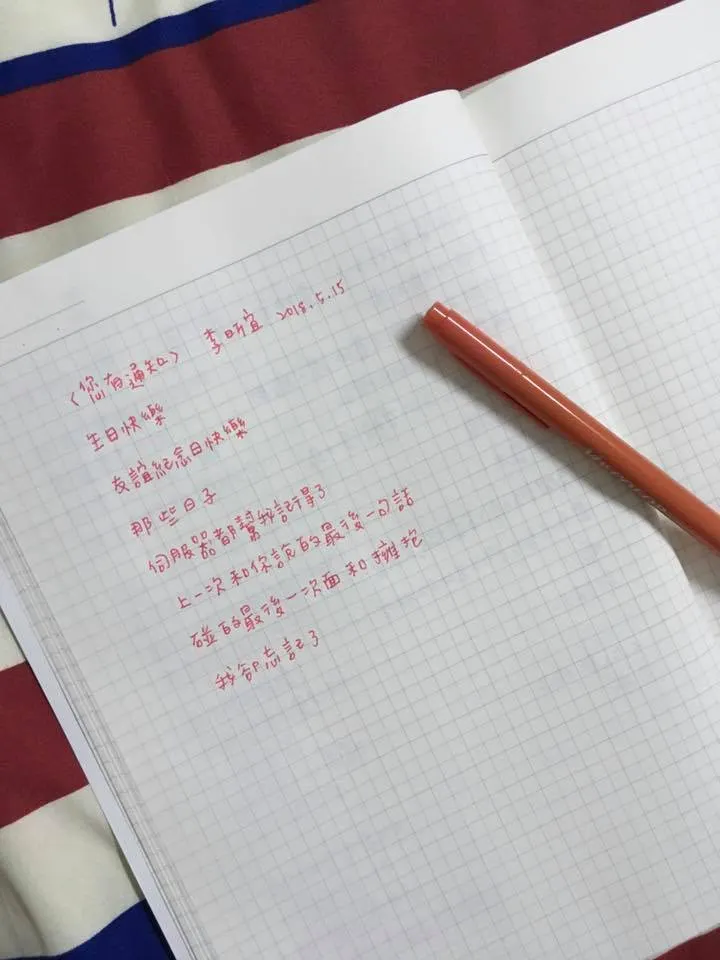 〈您有通知〉 李昕宜 2018.5.15
生日快樂
友誼紀念日快樂
那些日子
伺服器都幫我記得了
上一次和你說的最後一句話
碰的最後一次面和擁抱
我卻忘記了